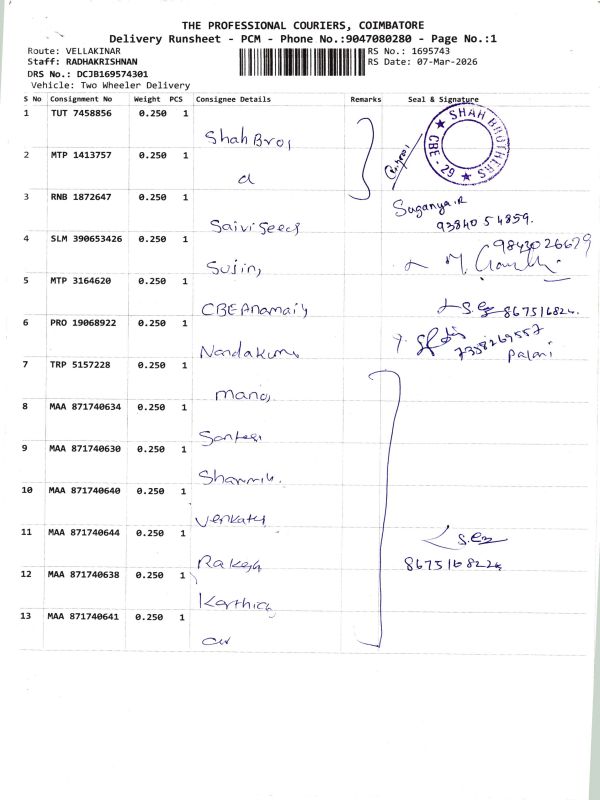 THE PROFESSIONAL COURIERS, COIMBATORE
Delivery Runsheet - PCM - Phone No.:9047080280 - Page No.:1
Route: VELLAKINAR RS No.: 1695743
Staff: RADHAKRISHNAN RS Date: 07-Mar-2026
DRS No.: DCJB169574301
Vehicle: Two Wheeler Delivery
S No Consignment No Weight PCS Consignee Details Remarks Seal & Signature
1 TUT 7458856 0.250 1 Shah Bros
SHAH BROTHERS
CBE - 29
2 MTP 1413757 0.250 1
3 RNB 1872647 0.250 1 Saivi Seeds Suganya.R
9384054859.
4 SLM 390653426 0.250 1 Sujin 9843026679
5 MTP 3164620 0.250 1 CBE Anamaly
6 PRO 19068922 0.250 1 Nandakum 7358269557
Palani
7 TRP 5157228 0.250 1 Mano
8 MAA 871740634 0.250 1
9 MAA 871740630 0.250 1
10 MAA 871740640 0.250 1 Venkat
11 MAA 871740644 0.250 1 Rakesh
12 MAA 871740638 0.250 1 Karthick
13 MAA 871740641 0.250 1